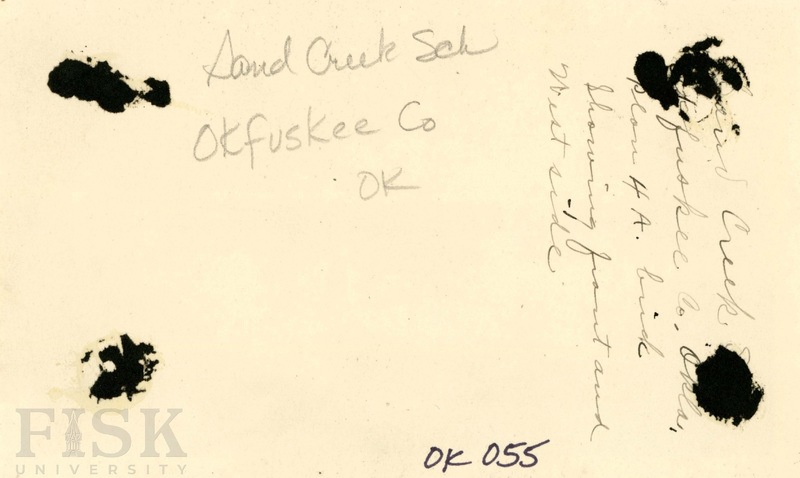 Sand Creek Sch
Okfuskee Co
OK
Sand Creek
Okfuskee Co. Okla.
Plan 4 A. brick
Showing front and
West side
OK 055
FISK
UNIVERSITY